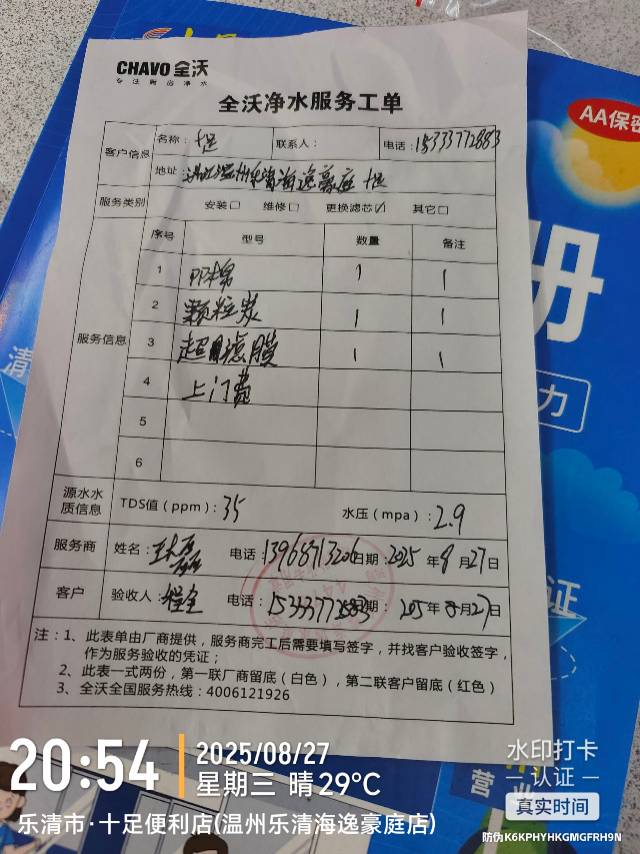 CHAVO 全沃
专注商务净水
全沃净水服务工单
AA保密
册
力
证
清
营业
客户信息 名称：十足 联系人： 电话：15333772883
地址 浙江温州乐清海逸豪庭 十足
服务类别 安装□ 维修□ 更换滤芯☑ 其它□
服务信息 序号 型号 数量 备注
1 PP棉 1 1
2 颗粒炭 1 1
3 超滤膜 1 1
4 上门费
5
6
源水水质信息 TDS值（ppm）：35 水压（mpa）：2.9
服务商 姓名： 电话：13968713206 日期：2025年8月27日
客户 验收人： 电话：15333772883 日期：205年8月27日
注：1、此表单由厂商提供，服务商完工后需要填写签字，并找客户验收签字，
作为服务验收的凭证；
2、此表一式两份，第一联厂商留底（白色），第二联客户留底（红色）
3、全沃全国服务热线：4006121926
20:54
2025/08/27
星期三 晴 29°C
乐清市·十足便利店(温州乐清海逸豪庭店)
水印打卡
认证
真实时间
防伪K6KPHYHKGMGFRH9N